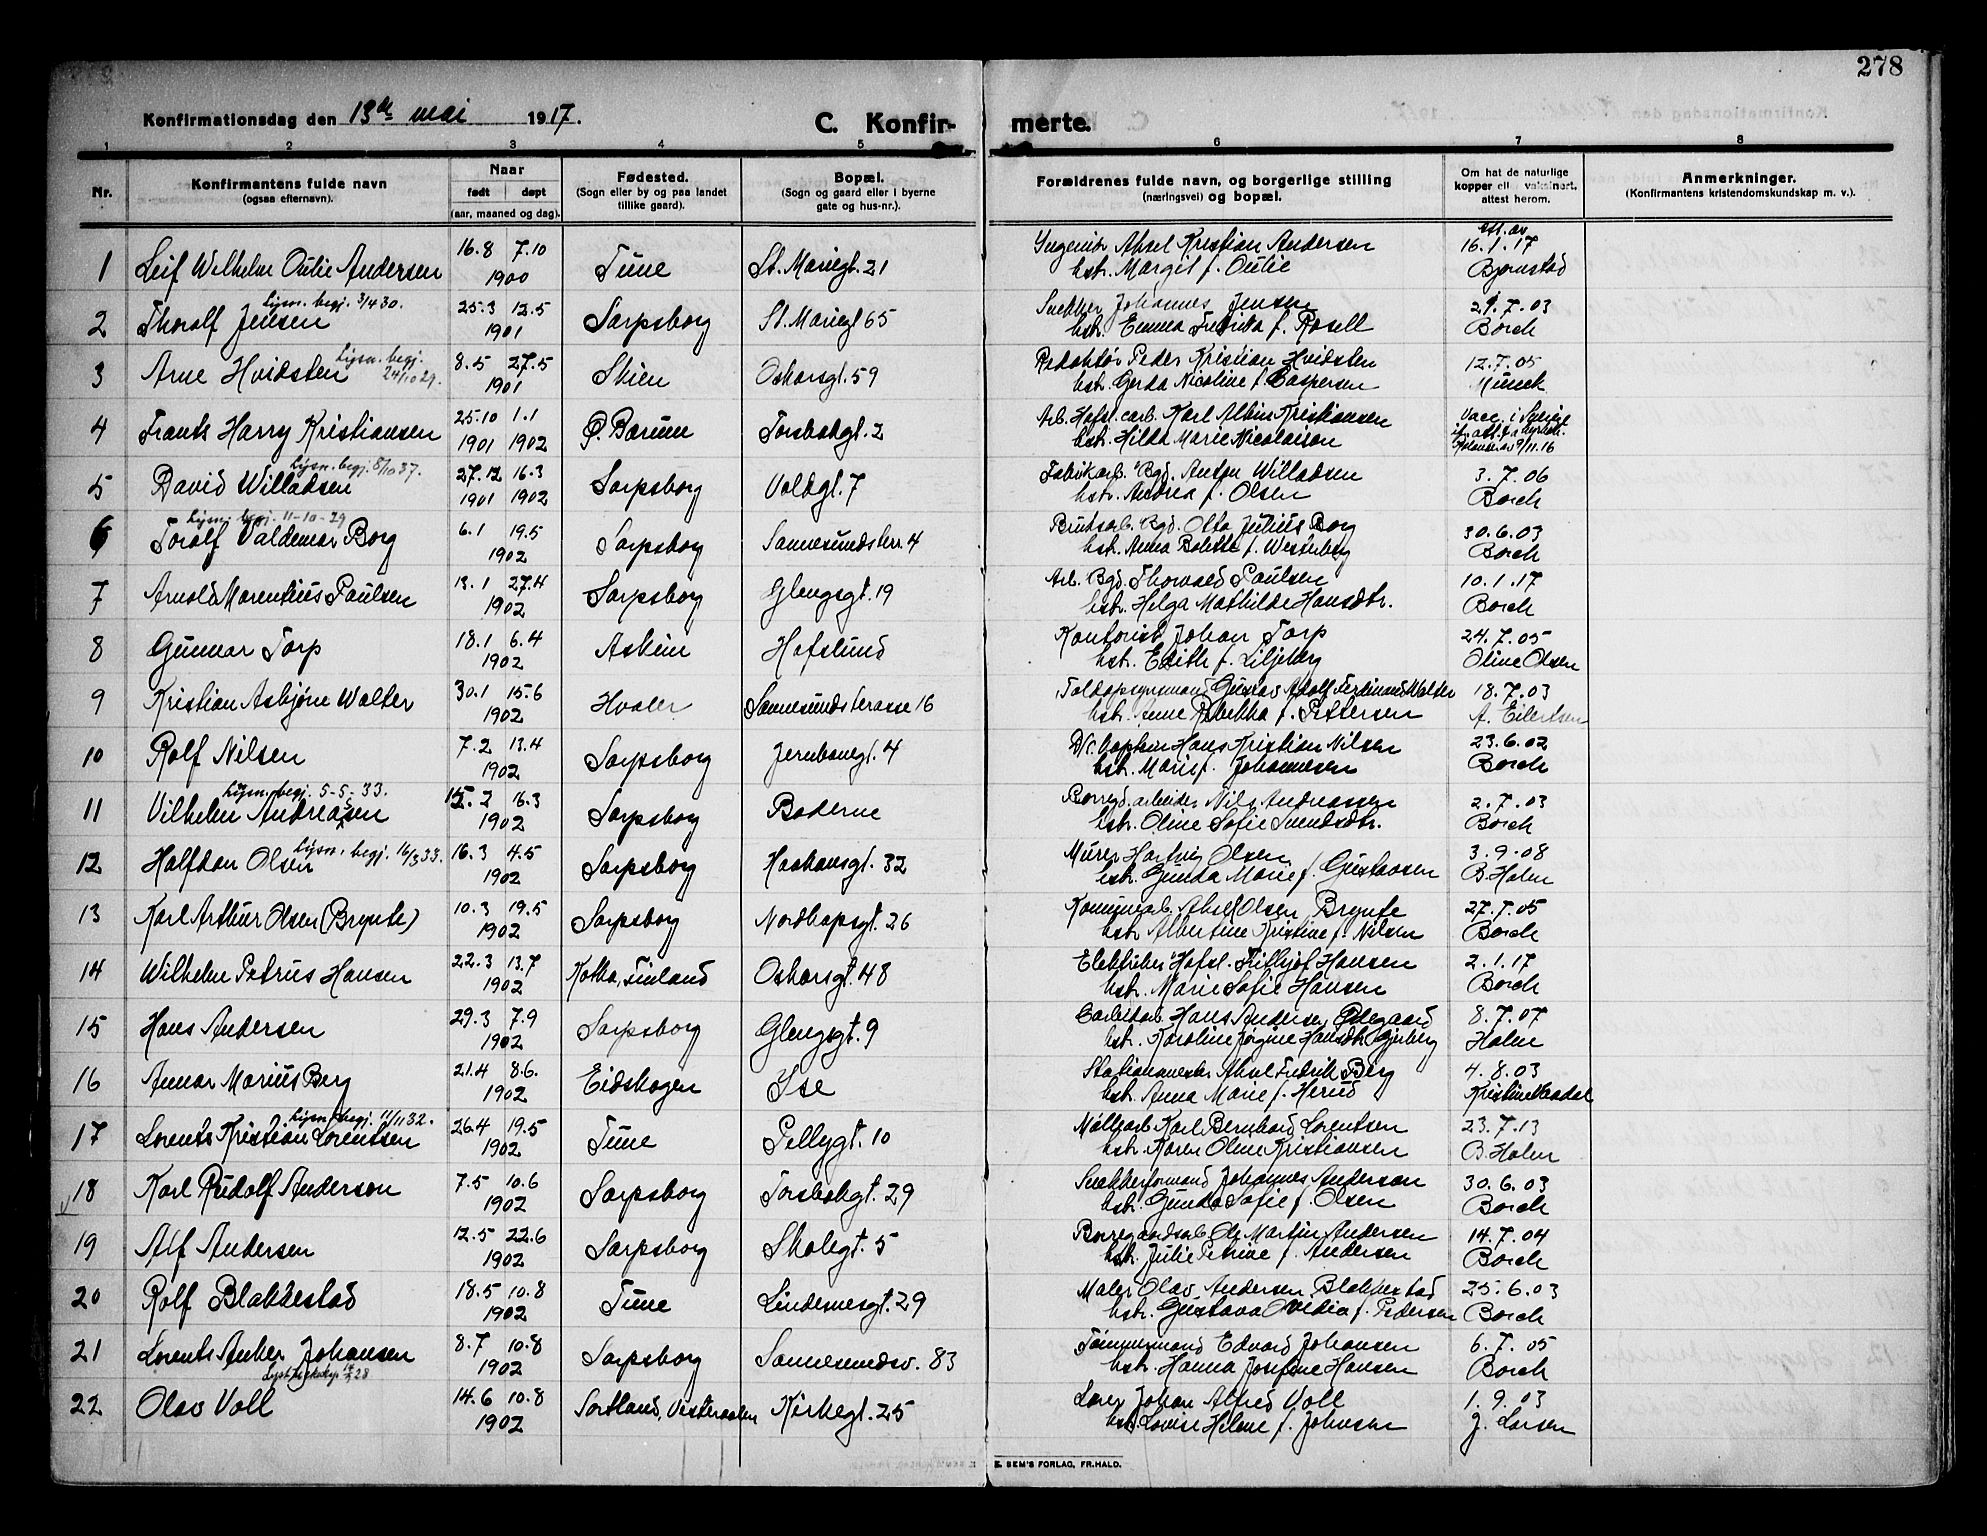 278
Konfirmationsdag den 13de mai 1917.
C. Konfir- merte.
1 2 3 4 5 6 7 8
Nr.
Konfirmantens fulde navn
(ogsaa efternavn).
Naar
født døpt
(aar, maaned og dag).
Fødested.
(Sogn eller by og paa landet
tillike gaard).
Bopæl.
(Sogn og gaard eller i byerne
gate og hus-nr.).
Forældrenes fulde navn, og borgerlige stilling
(næringsvei) og bopæl.
Om hat de naturlige
kopper ell. vaksinert,
attest herom.
Anmerkninger.
(Konfirmantens kristendomskundskap m. v.).
1 Leif Wilhelm Oulie Andersen 16.8 7.10 1900 Tune St. Mariegt. 21 Ingeniør Aksel Kristian Andersen
hstr. Margit f. Oulie
16.1.17
Bjørnstad
Lysn. begj. 3/4 30.
2 Thoralf Jensen 25.3 12.5 1901 Sarpsborg St. Mariegt 65 Snekker Johannes Jensen
hstr. Emma Fredrika f. Rosell
29.7.03
Borch
Lysn. begj. 24/10 29.
3 Arne Hvidsten 8.5 27.5 1901 Skien Oskarsgt. 59 Redaktør Peder Kristian Hvidsten
hstr. Gerda Nicoline f. Caspersen
12.7.05
Munch
4 Frants Harry Kristiansen 25.10 1.1 1901 1902 Ø. Bærum Torsbekgt. 2 Arb. Hafsl. carb. Karl Albin Kristiansen
hstr. Hilda Marie Nicolaison
Vacc. i Sverige
9/11.16
Lysn. begj. 8/10 37.
5 David Willadsen 27.12 16.3 1901 1902 Sarpsborg Voldgt. 7 Fabrikarb. Bgd. Anton Willadsen
hstr. Andrea f. Olsen
3.7.06
Borch
Lysn. begj. 11-10-29
6 Toralf Valdemar Borg 6.1 19.5 1902 Sarpsborg Sannesundsterr. 4 Bruksarb. Bgd. Otto Julius Borg
hstr. Anna Bolette f. Westerberg
30.6.03
Borch
7 Arnold Marentius Paulsen 13.1 27.4 1902 Sarpsborg Glengsgt. 19 Arb. Bgd. Thorvald Paulsen
hstr. Helga Mathilde Hansdtr.
10.1.17
Borch
8 Gunnar Torp 18.1 6.4 1902 Askim Hafslund Kontorist Johan Torp
hstr. Edith f. Liljeberg
24.7.05
Oline Olsen
9 Kristian Asbjørn Walter 30.1 15.6 1902 Hvaler Sannesundsterasse 16 Toldopsynsmand Gustav Adolf Ferdinand Walter
hstr. Anne Rebekka f. Pettersen
18.7.03
A. Eilertsen
10 Rolf Nilsen 7.2 13.4 1902 Sarpsborg Jernbanegt. 4 D/S. kaptein Hans Kristian Nilsen
hstr. Marie f. Johannesen
23.6.02
Borch
Lysn. begj. 5-5-33.
11 Vilhelm Andreassen 15.2 16.3 1902 Sarpsborg Boderne Borregd. arbeider Nils Andreassen
hstr. Oline Sofie Svendsdtr.
2.7.03
Borch
Lysn. begj. 16/3 33.
12 Halfdan Olsen 16.3 4.5 1902 Sarpsborg Haakonsgt. 32 Murer Hartvig Olsen
hstr. Gunda Marie f. Gustavsen
3.9.08
B. Holm
13 Karl Arthur Olsen (Brynte) 10.3 19.5 1902 Sarpsborg Nordkapsgt. 26 Komunearb. Aksel Olsen Brynte
hstr Albertine Kristine f. Nilsen
27.7.05
Borch
14 Wilhelm Petrus Hansen 22.3 13.7 1902 Kotka, Finland Oskarsgt. 48 Elektriker Hafsl. Fritjof Hansen
hstr. Marie Sofie Hansen
2.1.17
Borch
15 Hans Andersen 29.3 7.9 1902 Sarpsborg Glengsgt. 9 Carbidarb. Hans Andersen Ødegaard
hstr. Karoline Jørgine Hansdtr. Gjerberg
8.7.07
Holm
16 Annar Marius Berg 21.4 8.6. 1902 Eidskogen Ise Stationsmester Aksel Fredrik Berg
hstr. Anna Marie f. Herud
4.8.03
Kristine Vaadal
Lysn. begj. 11/11 32.
17 Lorents Kristian Lorentsen 26.4 19.5 1902 Tune Pellygt. 10 Møllearb Karl Bernhard Lorentsen
hstr. Karen Oline Kristiansen
23.7.13
B. Holm
18 Karl Rudolf Anderson 7.5 10.6 1902 Sarpsborg Torsbekgt. 29 Snekkerformand Johannes Anderson
hstr. Gunda Sofie f. Olsen
30.6.03
Borch
19 Alf Andersen 12.5 22.6 1902 Sarpsborg Skolegt. 5 Borregaardsarb Ole Martin Andersen
hstr. Julie Petrine f. Andersen
14.7.04
Borch
20 Rolf Blakkestad 18.5 10.8 1902 Tune Lindemesgt. 29 Maler Olav Andersen Blakkestad
hstr. Gustava Ovedia f. Pedersen
25.6.03
Borch
21 Lorents Anker Johansen 8.7 10.8 1902 Sarpsborg Sannesundsv. 83 Tømmermand Edvard Johansen
hstr. Hanna Josefine Hansen
6.7.05
Borch
22 Olav Voll 14.6 10.8 1902 Sortland, Vesteraalen Kirkegt. 25 Lærer Johan Alfred Voll
hstr. Lovise Helene f. Johnsen
1.9.03
J. Larsen
E. SEM'S FORLAG, FR.HALD.